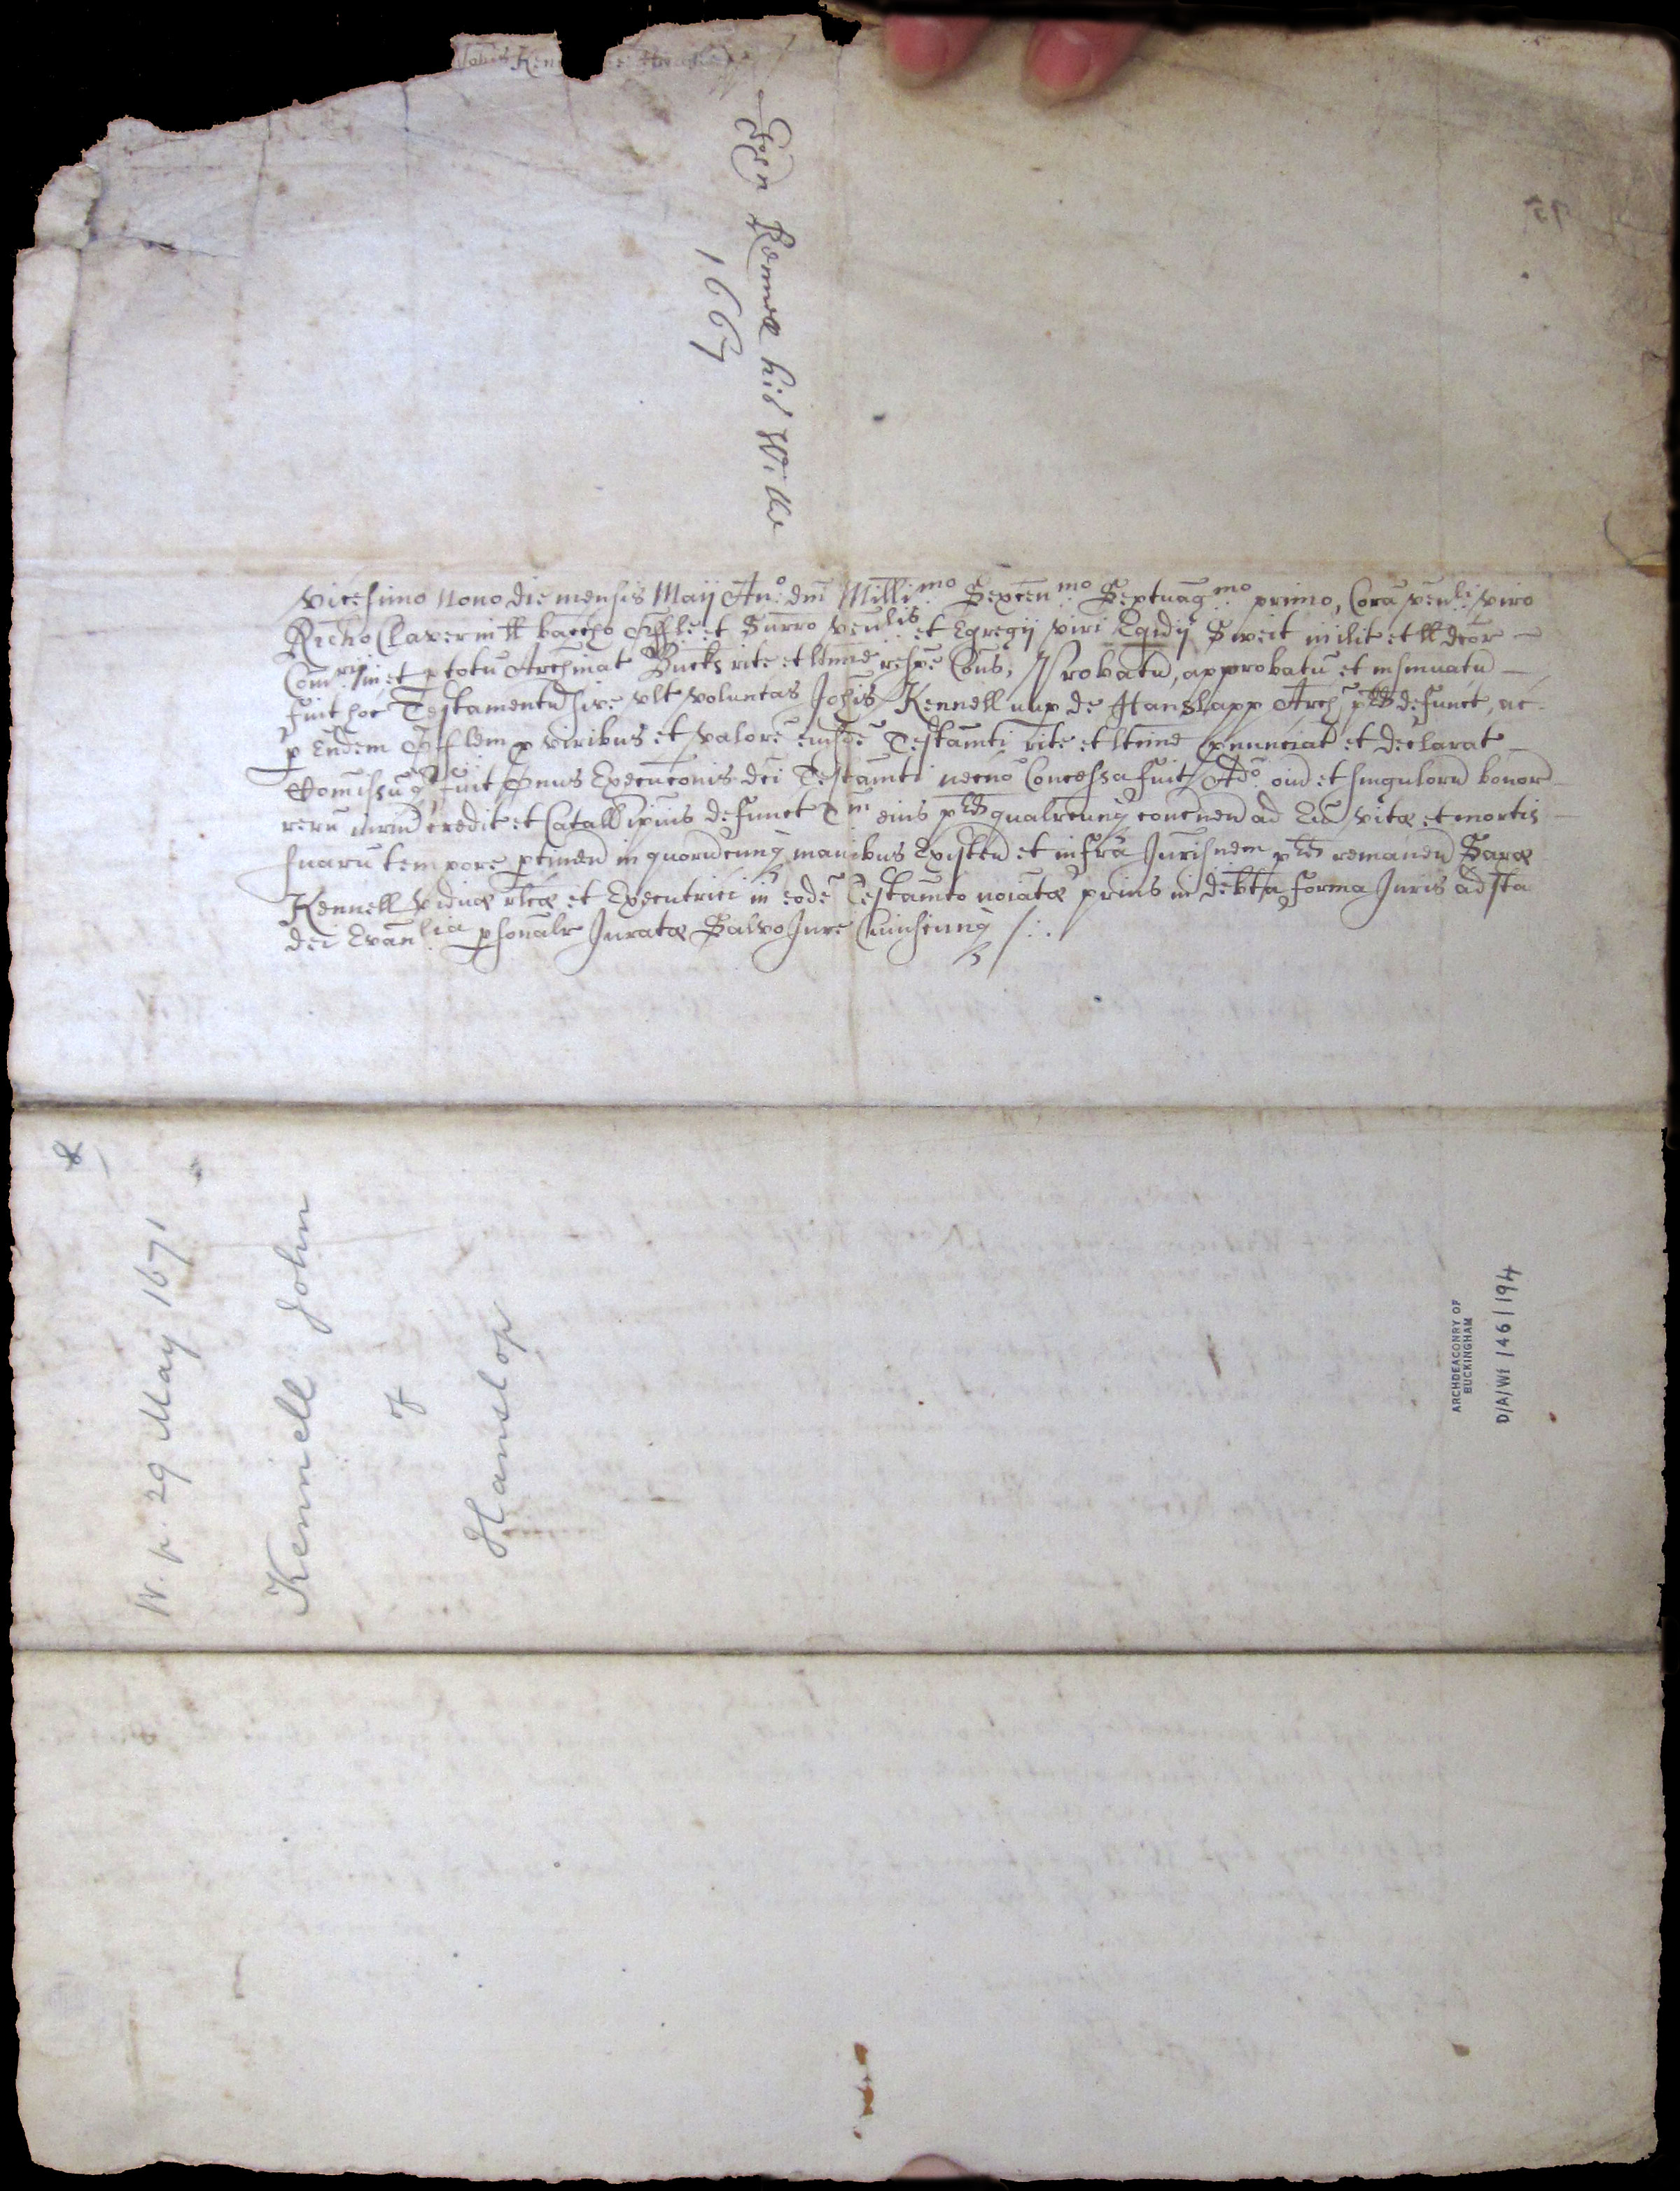 Johis Kenn
John Kennell his Wille
1667
Vicesimo Nono die mensis Maij Ano: dni Milli:mo Sexcen:mo Septuag:mo primo, Cora ven:li viro
Richo Claver in ll baccho Offle et Surro ven:lis et Egregij viri Egidij Sweit milit et ll dcor
Com:rij in et p totu Archinat Bucks rite et ltime respe Cons, Probatu, approbatu et insinuatu
fuit hoc Testamentu sive ult voluntas Johis Kennell nup de Hanslapp Arch: p:ts defunct, ac
p Eudem Offlem p viribus et valore eiusde Testamti rite et ltime pnunciat et declarat
Comissuq fuit Onus Execuconis dci Testamti necno Concessa fuit Ado: oiu et singuloru bonor
reru iuriu credit et Catall ipius defunct eius p:ts qualrcunq concnen ad Eu vitæ et mortis
suaru tempore ptinen in quorucunq manibus Existen et infra Jurisnem p:ts remanen Saræ
Kennell viduæ rlcæ et Executrici in eode Testamto noiatæ prius in debta forma Juris ad sta
dei Evan:lia psonalr Juratæ Salvo Jure Cuiuscunq
W. p. 29 May 1671
Kennell John
of
Hanslop
ARCHDEACONRY OF
BUCKINGHAM
D/A/Wf/46/194